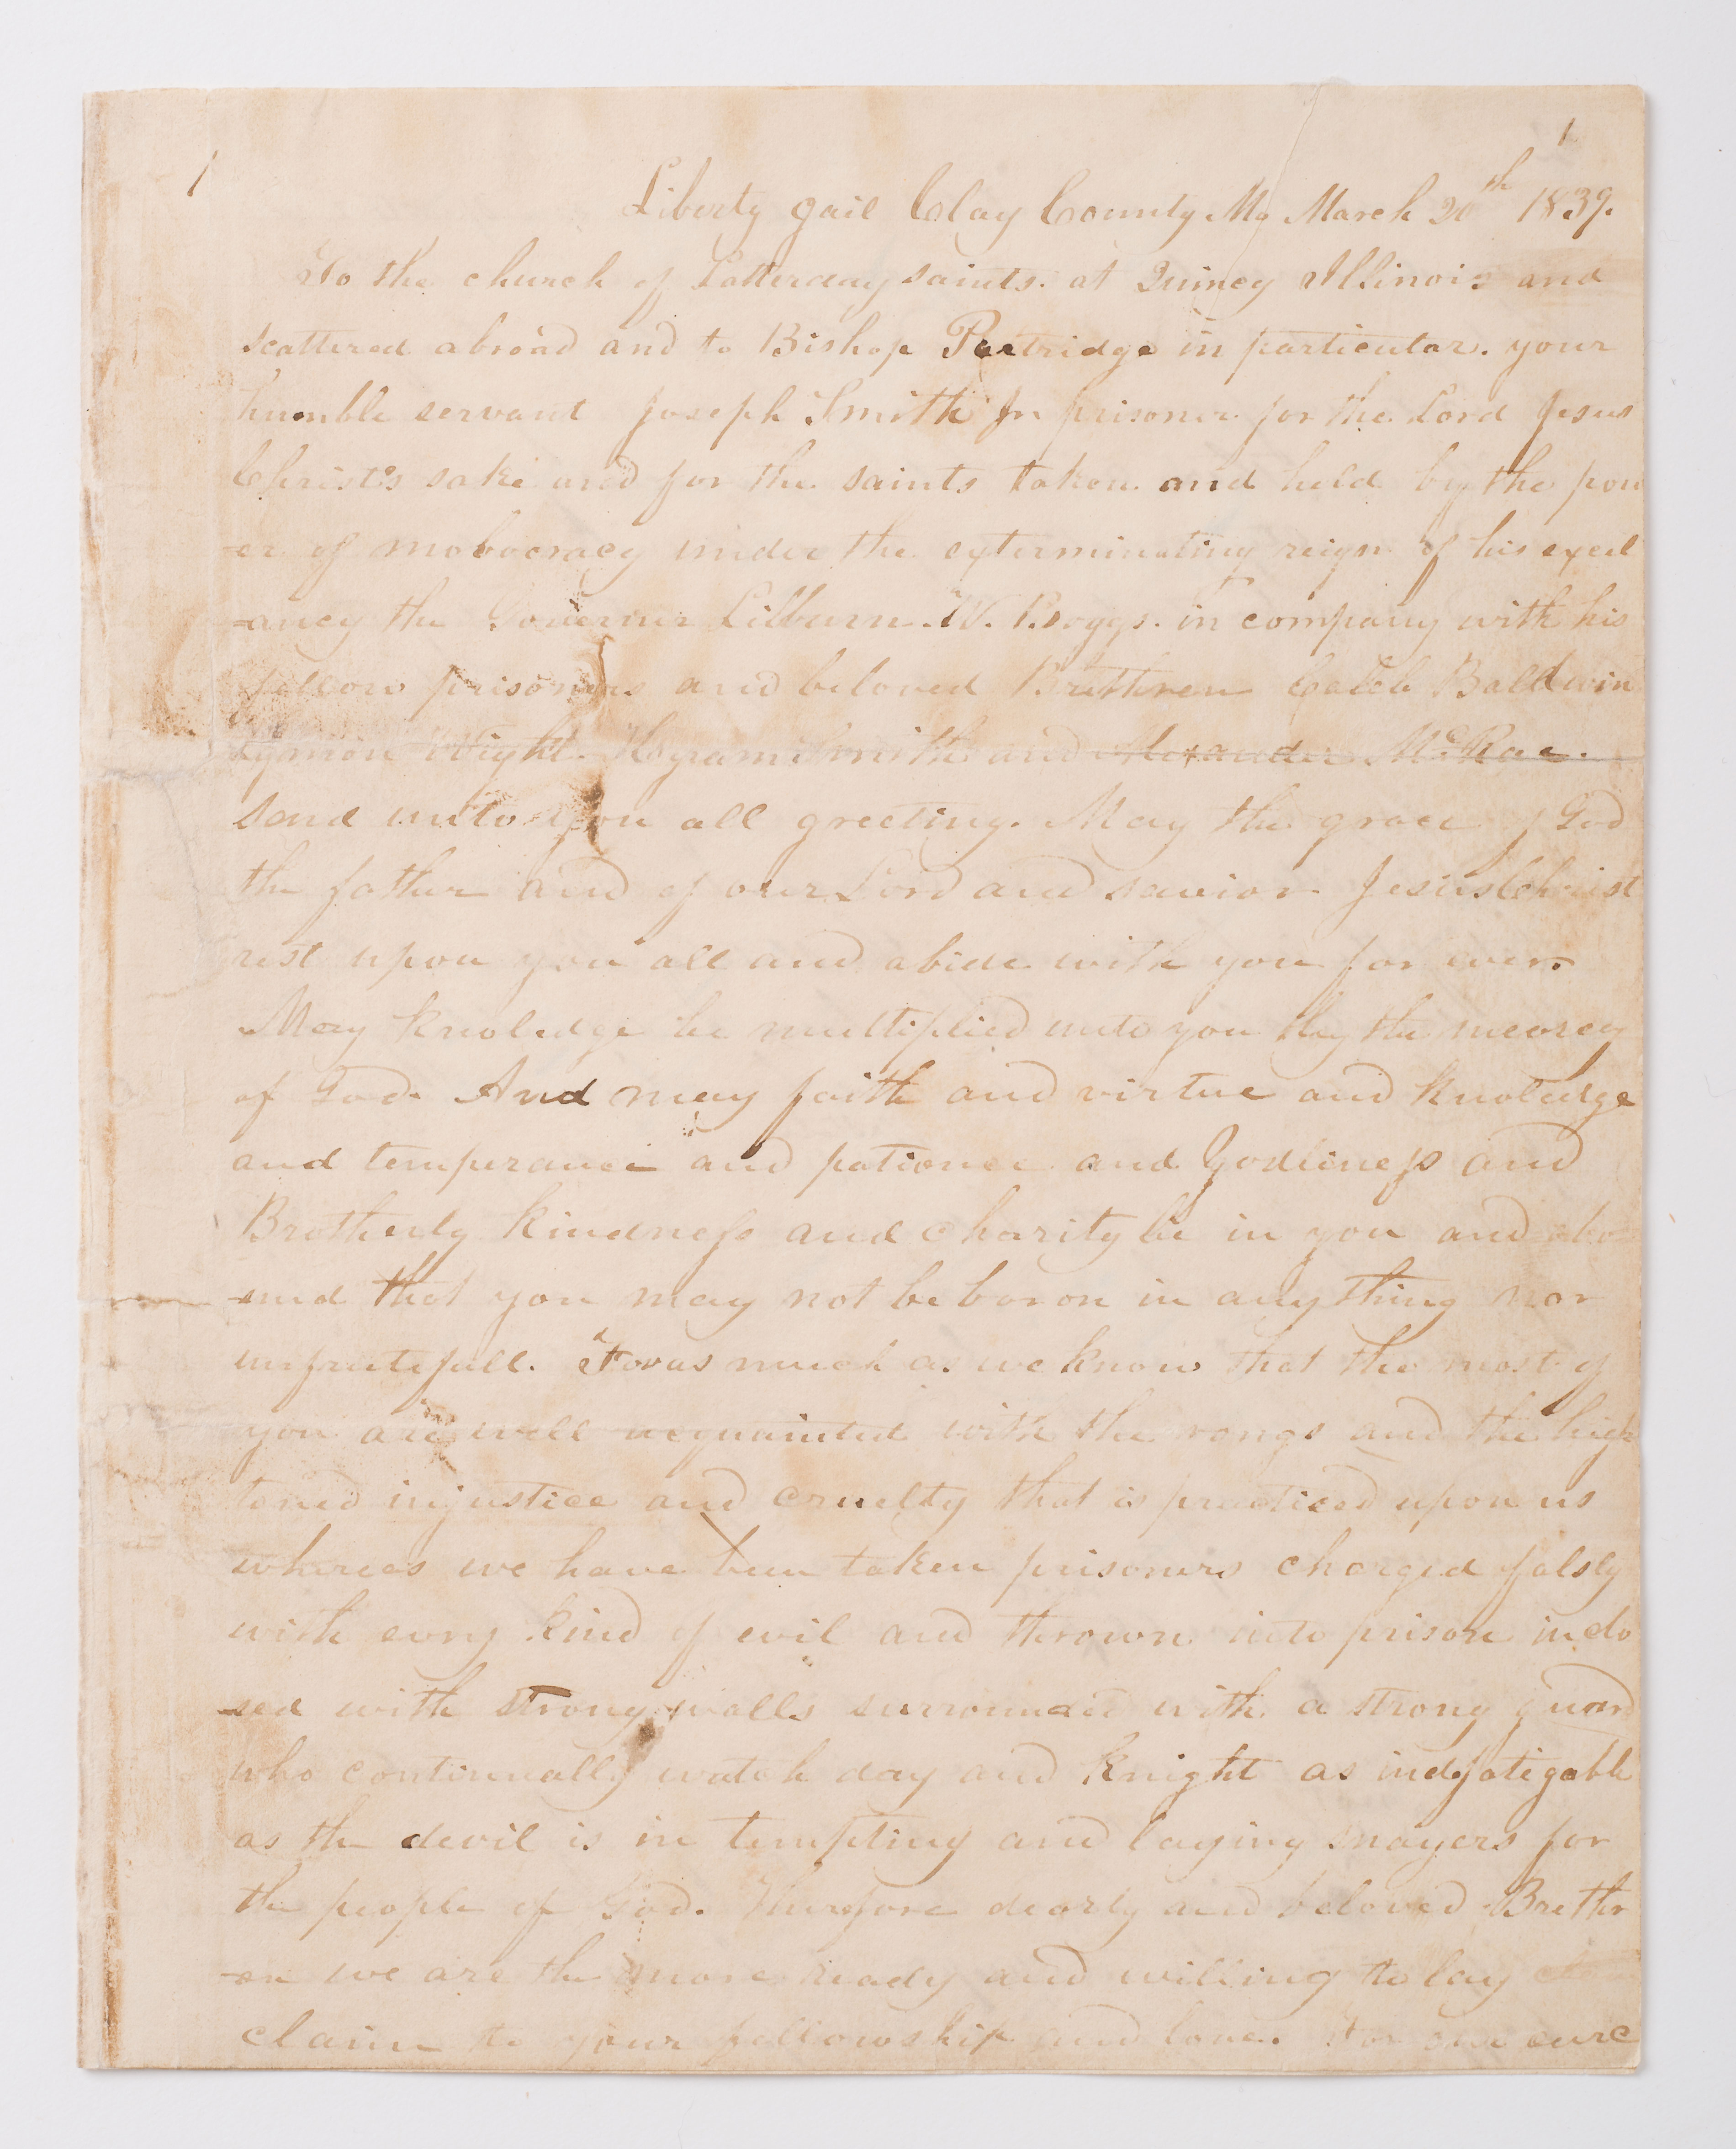 1
1
Liberty Jail Clay County Mo March 20th 1839.
To the church of Latterday saints. at Quincy Illinois and
scattered abroad and to Bishop Partridge in particular. your
humble servant Joseph Smith Jr prisoner for the Lord Jesus
Christ's sake and for the saints taken and held by the pow
-er of mobocracy under the exterminating reign of his excel
-ancy the Governer Lilburn. W. Boggs. in company with his
fellow prisoners and beloved Brethren Caleb Baldwin
Lymon Wight. Hyram Smith and Alexander McRae.
Send unto you all greeting. May the grace of God
the father and of our Lord and savior Jesus Christ
rest upon you all and abide with you for ever.
May knoledge be multiplied unto you by the meorcy
of God. And may faith and virtue and knoledge
and temperance and patience and Godliness and
Brotherly kindness and charity be in you and abo
-und that you may not be baron in anything nor
unfrutefull. Forasmuch as we know that the most of
you are well acquainted with the rongs and the high
toned injustice and cruelty that is practiced upon us
whereas we have been taken prisoners charged falsly
with evry kind of evil and thrown into prison inclo
-sed with strong walls surrounded with a strong guard
who continually watch day and knight as indefatigable
as the devil is in tempting and laying snayers for
the people of God. Therefore dearly and beloved Brethr
-en we are the more ready and willing to lay
claim to your fellowship and love. For our curc